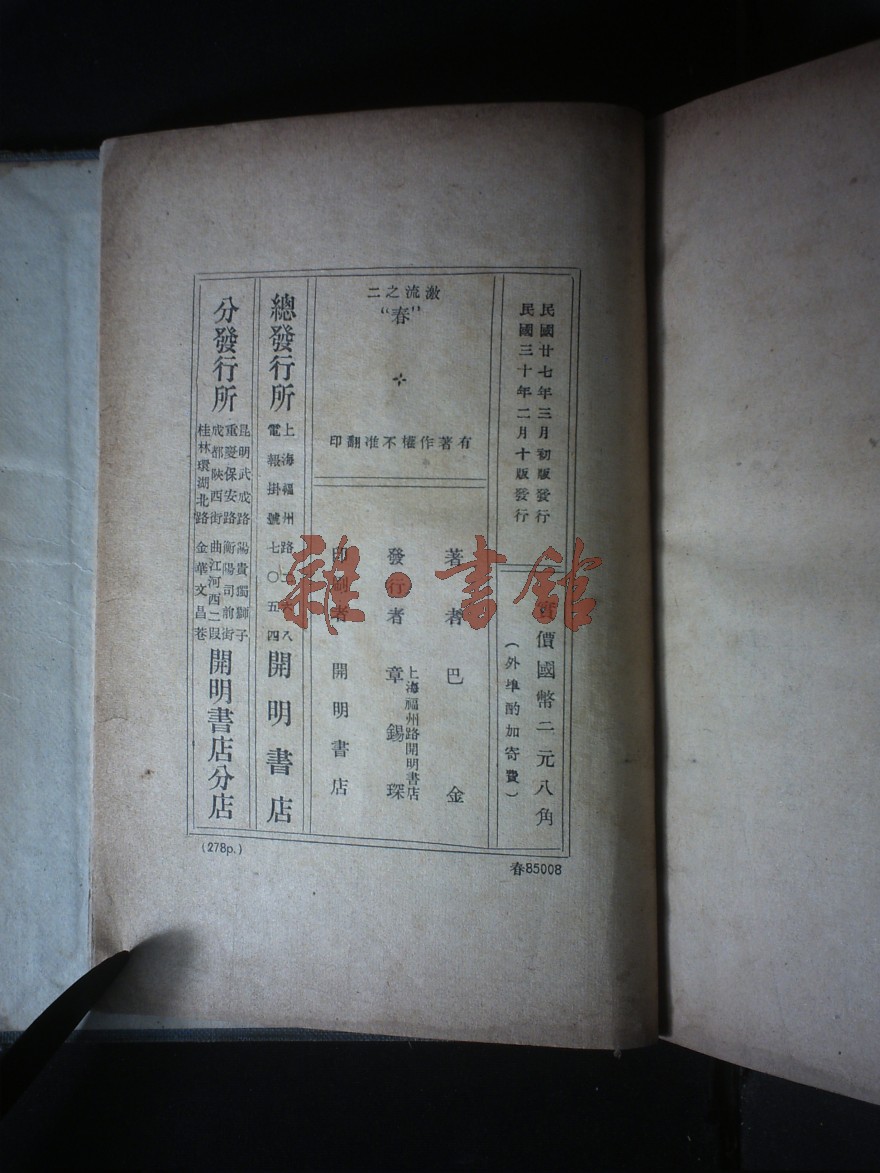 民國廿七年三月初版發行
民國三十年二月十版發行
實價國幣二元八角
(外埠酌加寄費)
激流之二
“春”
有著作權不准翻印
著者 巴金
發行者 章錫琛
上海福州路開明書店
印刷者 開明書店
總發行所
上海福州路二六八
電報掛號七〇五四
開明書店
分發行所
昆明武成路
重慶保安路
成都陝西街
桂林環湖北路
貴陽獨獅子
衡陽司前街
曲江河西二段
金華文昌巷
開明書店分店
(278p.)
春85008
雜·書館